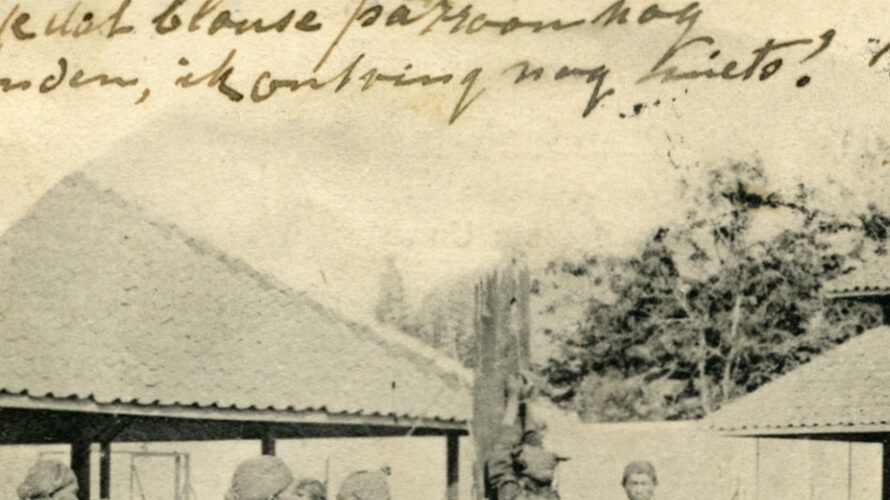 dat blouse patroon nog
nden, ik ontving nog niets!